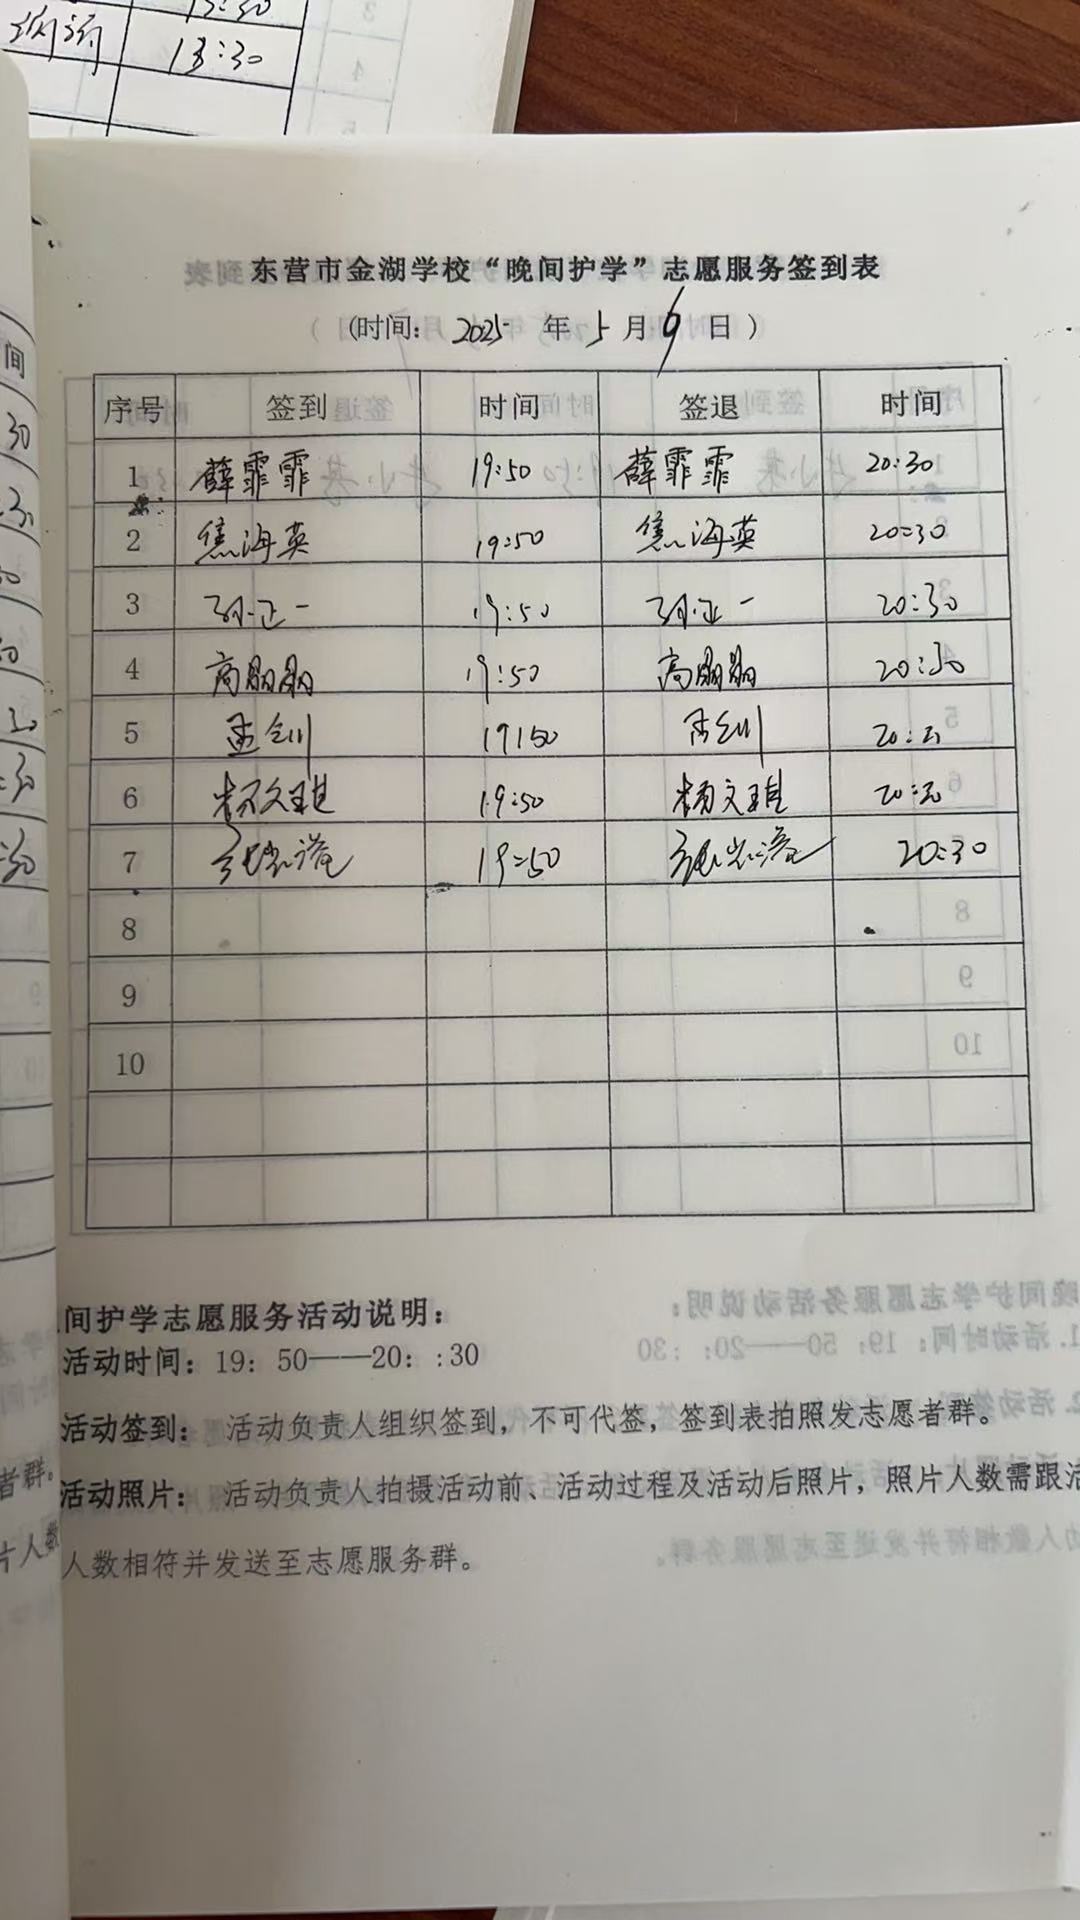 13:30
东营市金湖学校“晚间护学”志愿服务签到表
(时间: 2025 年 5 月 9 日 )
序号 签到 时间 签退 时间
1 薛霏霏 19:50 薛霏霏 20:30
2 焦海英 19:50 焦海英 20:30
3 孙正一 19:50 孙正一 20:30
4 高朋朋 19:50 高朋朋 20:30
5 19:50 20:30
6 杨文琪 19:50 杨文琪 20:30
7 19:50 20:30
8
9
10
间护学志愿服务活动说明:
活动时间: 19: 50——20: :30
活动签到: 活动负责人组织签到, 不可代签, 签到表拍照发志愿者群。
活动照片: 活动负责人拍摄活动前、活动过程及活动后照片, 照片人数需跟活
人数相符并发送至志愿服务群。